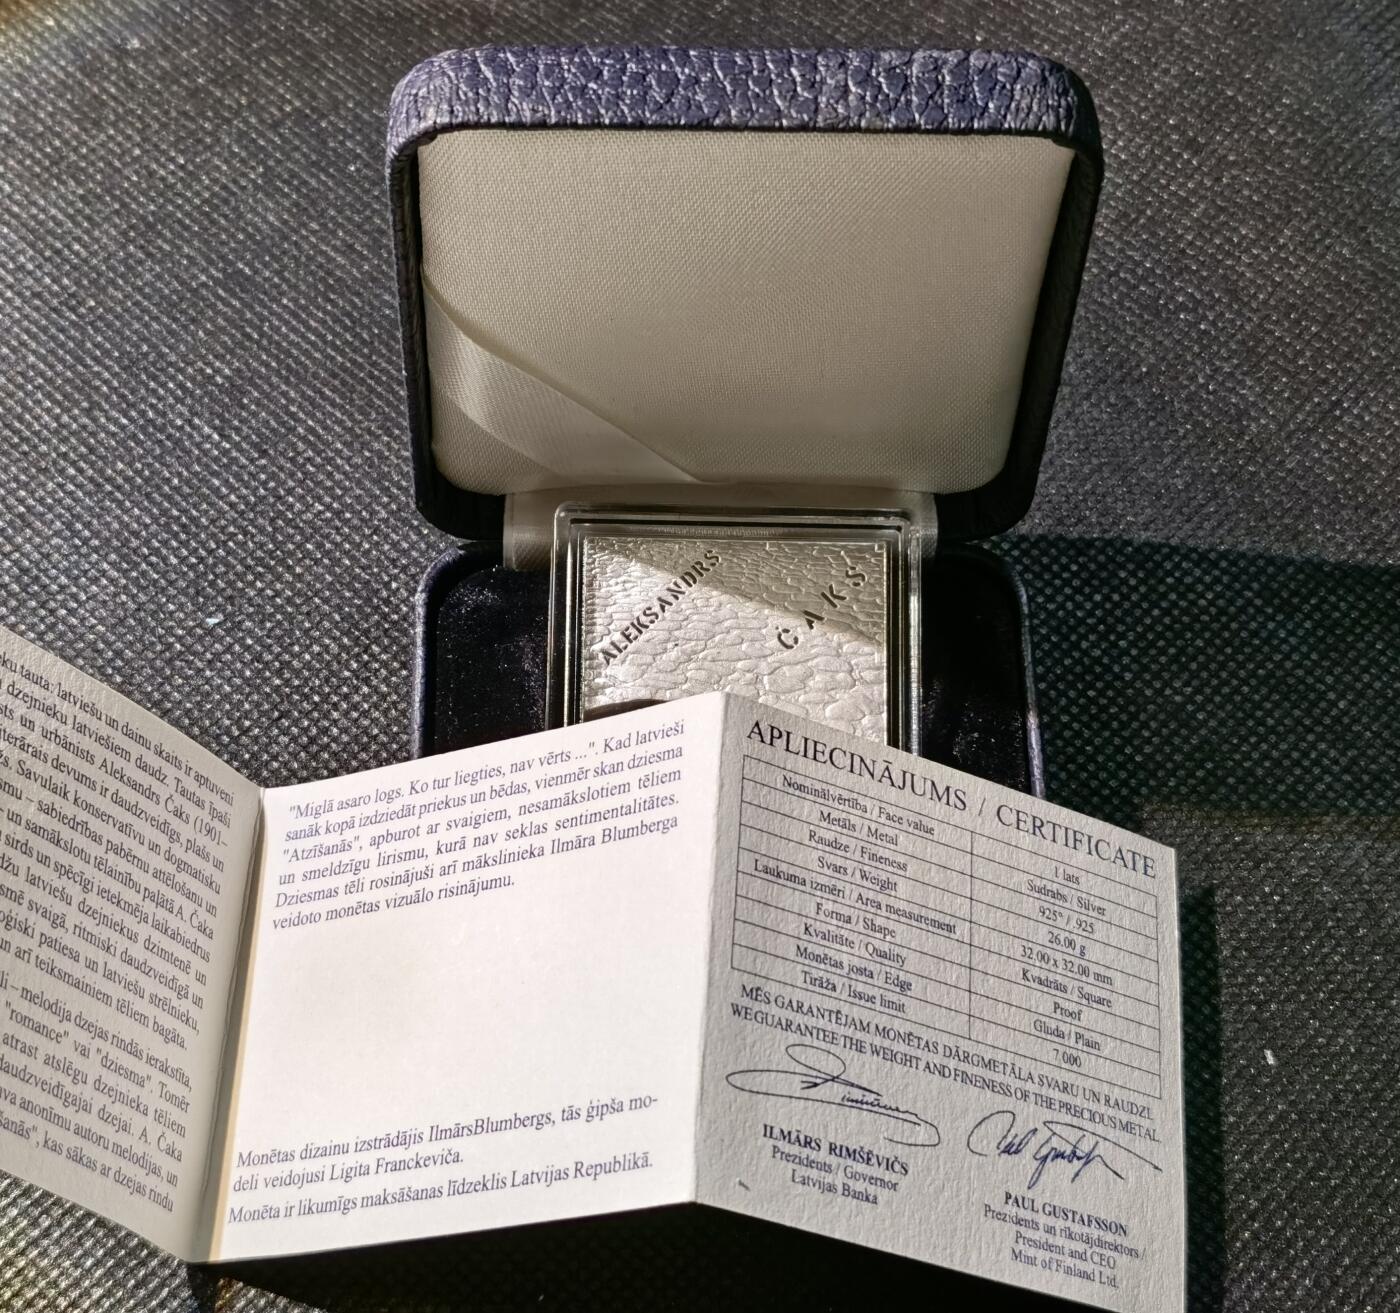 ALEKSANDRS
ČAKS
ku tauta: latviešu un dainu skaits ir aptuveni
dzejnieku latviešiem daudz. Tautas īpaši
sts un urbānists Aleksandrs Čaks (1901–
iterārais devums ir daudzveidīgs, plašs un
s. Savulaik konservatīvu un dogmatisku
smu – sabiedrības pabērnu attēlošanu un
un samākslotu tēlainību paļātā A. Čaka
sirds un spēcīgi ietekmēja laikabiedrus
džu latviešu dzejniekus dzimtenē un
smē svaigā, ritmiski daudzveidīgā un
oģiski patiesa un latviešu strēlnieku,
un arī teiksmainiem tēliem bagāta.
li – melodija dzejas rindās ierakstīta,
"romance" vai "dziesma". Tomēr
atrast atslēgu dzejnieka tēliem
daudzveidīgajai dzejai. A. Čaka
va anonīmu autoru melodijas, un
šanās", kas sākas ar dzejas rindu
"Miglā asaro logs. Ko tur liegties, nav vērts ...". Kad latvieši
sanāk kopā izdziedāt priekus un bēdas, vienmēr skan dziesma
"Atzīšanās", apburot ar svaigiem, nesamākslotiem tēliem
un smeldzīgu lirismu, kurā nav seklas sentimentalitātes.
Dziesmas tēli rosinājuši arī mākslinieka Ilmāra Blumberga
veidoto monētas vizuālo risinājumu.
Monētas dizainu izstrādājis IlmārsBlumbergs, tās ģipša mo-
deli veidojusi Ligita Franckeviča.
Monēta ir likumīgs maksāšanas līdzeklis Latvijas Republikā.
APLIECINĀJUMS / CERTIFICATE
Nominālvērtība / Face value 1 lats
Metāls / Metal Sudrabs / Silver
Raudze / Fineness 925° / .925
Svars / Weight 26.00 g
Laukuma izmēri / Area measurement 32.00 x 32.00 mm
Forma / Shape Kvadrāts / Square
Kvalitāte / Quality Proof
Monētas josta / Edge Gluda / Plain
Tirāža / Issue limit 7.000
MĒS GARANTĒJAM MONĒTAS DĀRGMETĀLA SVARU UN RAUDZI.
WE GUARANTEE THE WEIGHT AND FINENESS OF THE PRECIOUS METAL.
ILMĀRS RIMŠĒVIČS
Prezidents / Governor
Latvijas Banka
PAUL GUSTAFSSON
Prezidents un rīkotājdirektors /
President and CEO
Mint of Finland Ltd.